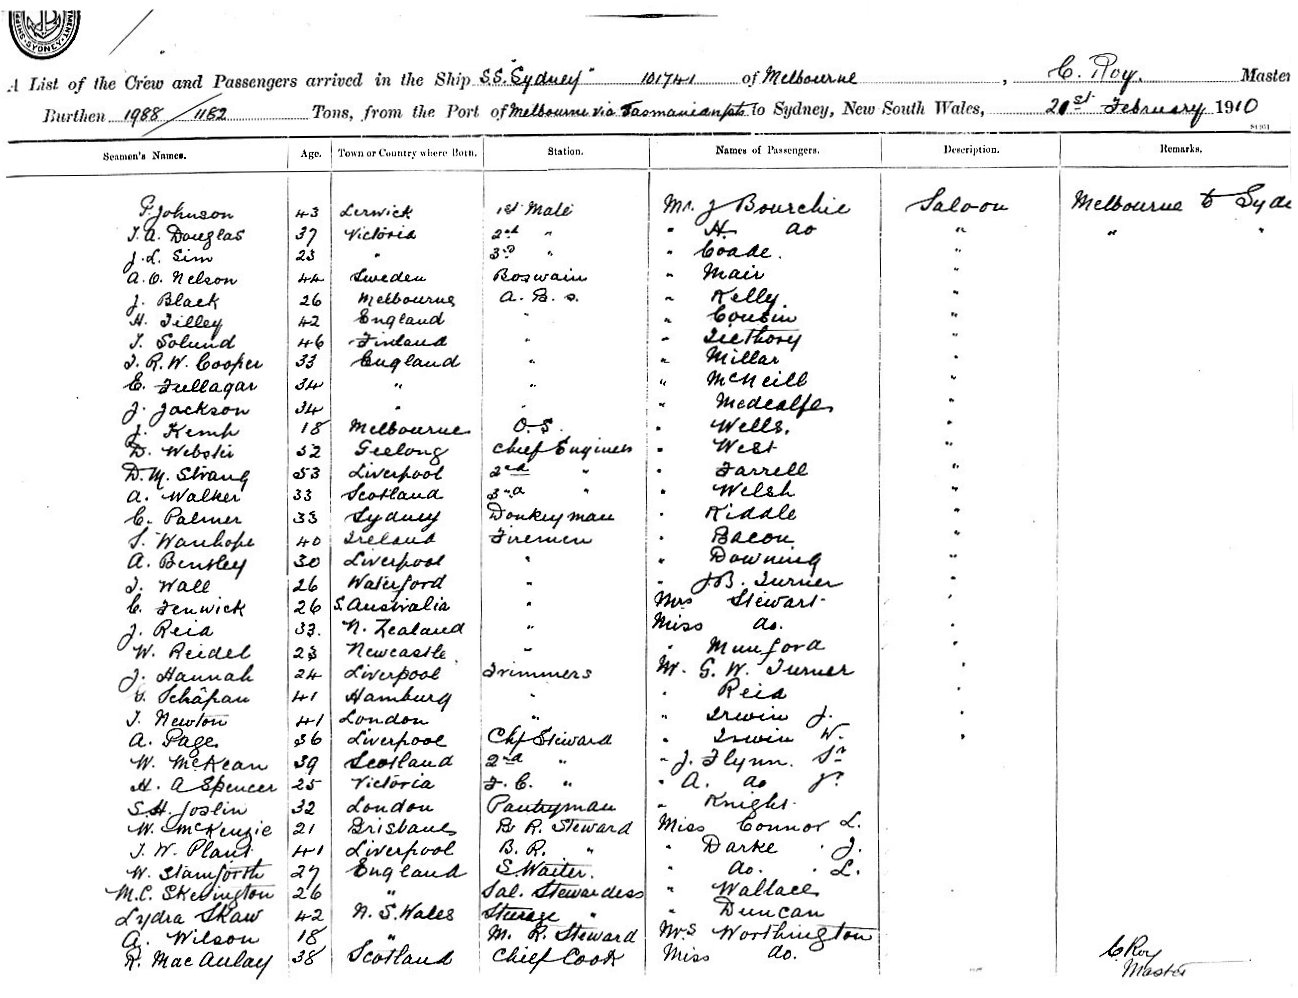 SYDNEY
A List of the Crew and Passengers arrived in the Ship S.S. "Sydney" 101741 of Melbourne, C. Roy. Master
Burthen 1988/1182 Tons, from the Port of Melbourne via Tasmanian pts to Sydney, New South Wales, 21st February 1910
Seamen's Names. Age. Town or Country where Born. Station. Names of Passengers. Description. Remarks.
Johnson 43 Lerwick 1st Mate Mr. J Bourchie Saloon Melbourne to Syd
T. A. Douglas 37 Victoria 2nd " " H. do " " "
J. L. Sim 23 " 3rd " " Coade. "
A. O. Nelson 44 Sweden Boswain " Mair "
J. Black 26 Melbourne A. B. s. " Kelly "
H. Tilley 42 England " " Cousin "
T. Solund 46 Finland " " "
T. R. W. Cooper 33 England " " Millar "
C. Fullagar 34 " " " McNeill "
J. Jackson 34 " " " Medcalfe "
J. Kemp 18 Melbourne O. S. " Wells. "
D. Webster 32 Geelong Chief Engineer " West "
D. M. Strang 53 Liverpool 2nd " " Farrell "
A. Walker 33 Scotland 3rd " " Welsh "
C. Palmer 33 Sydney Donkeyman " Riddle "
S. Wanhope 40 Ireland Firemen " Bacon "
A. Bentley 30 Liverpool " " Downing "
T. Wall 26 Waterford " " J. B. Turner "
C. Fenwick 26 S. Australia " Mrs Stewart "
J. Reid 33. N. Zealand " Miss do. "
W. Reidel 23 Newcastle " " Munford "
J. Hannah 24 Liverpool Trimmers Mr. G. W. Turner "
Schäpan 41 Hamburg " " Reid "
T. Newton 41 London " " Irwin J. "
A. Page 36 Liverpool Chf Steward " Irwin W. "
W. McKean 39 Scotland 2nd " " J. Flynn. Sr
H. A Spencer 25 Victoria F. C. " " A. do Jr
S. H. Joslin 32 London Pantryman " Knight
W. McKenzie 21 Brisbane B. R. Steward Miss Connor L.
T. W. Plant 41 Liverpool B. R. " " Darke J.
W. Stamforth 27 England S Waiter. " do. L.
M. C. Skevington 26 " Sal. Stewardess " Wallace
Lydra Shaw 42 N. S. Wales Sterage " " Duncan
A. Wilson 18 " M. R. Steward Mrs Worthington
R. MacAulay 38 Scotland Chief Cook Miss do.
C. Roy
Master